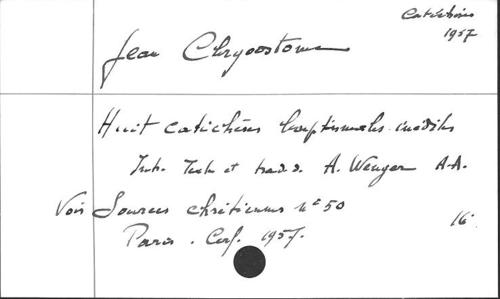 Catéchèses
1957
Jean Chrysostome
Huit catéchèses baptismales inédites
Intr. Texte et trad. d. A. Wenger A.A.
Voir Sources chrétiennes n° 50
16°
Paris. Cerf. 1957.